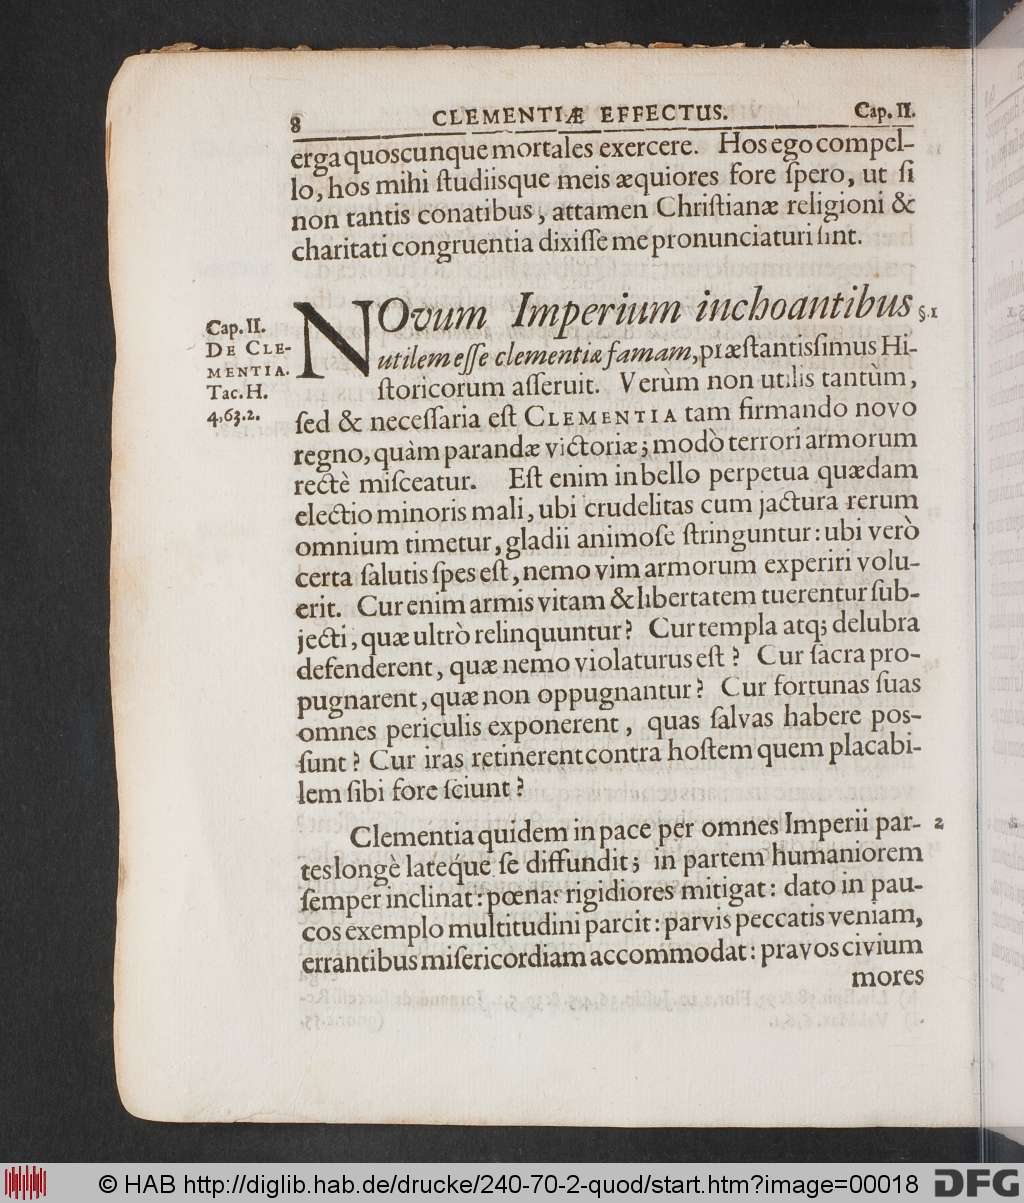 8 CLEMENTIÆ EFFECTUS. Cap. II.
erga quoscunque mortales exercere. Hos ego compel-
lo, hos mihi ſtudiisque meis æquiores fore ſpero, ut ſi
non tantis conatibus, attamen Chriſtianæ religioni &
charitati congruentia dixiſſe me pronunciaturi ſint.
Cap. II.
DE CLE-
MENTIA.
Tac. H.
4,63.2.
NOvum Imperium inchoantibus §.1
utilem eſſe clementiæ famam, præſtantiſſimus Hi-
ſtoricorum aſſeruit. Verùm non utilis tantùm,
ſed & neceſſaria eſt CLEMENTIA tam firmando novo
regno, quàm parandæ victoriæ; modò terrori armorum
rectè miſceatur. Eſt enim in bello perpetua quædam
electio minoris mali, ubi crudelitas cum jactura rerum
omnium timetur, gladii animoſe ſtringuntur: ubi verò
certa ſalutis ſpes eſt, nemo vim armorum experiri volu-
erit. Cur enim armis vitam & libertatem tuerentur ſub-
jecti, quæ ultrò relinquuntur? Cur templa atq; delubra
defenderent, quæ nemo violaturus eſt? Cur ſacra pro-
pugnarent, quæ non oppugnantur? Cur fortunas ſuas
omnes periculis exponerent, quas ſalvas habere pos-
ſunt? Cur iras retinerent contra hoſtem quem placabi-
lem ſibi fore ſciunt?
Clementia quidem in pace per omnes Imperii par- 2
tes longè latéque ſe diffundit; in partem humaniorem
ſemper inclinat: pœnas rigidiores mitigat: dato in pau-
cos exemplo multitudini parcit: parvis peccatis veniam,
errantibus miſericordiam accommodat: pravos civium
mores
© HAB http://diglib.hab.de/drucke/240-70-2-quod/start.htm?image=00018
DFG